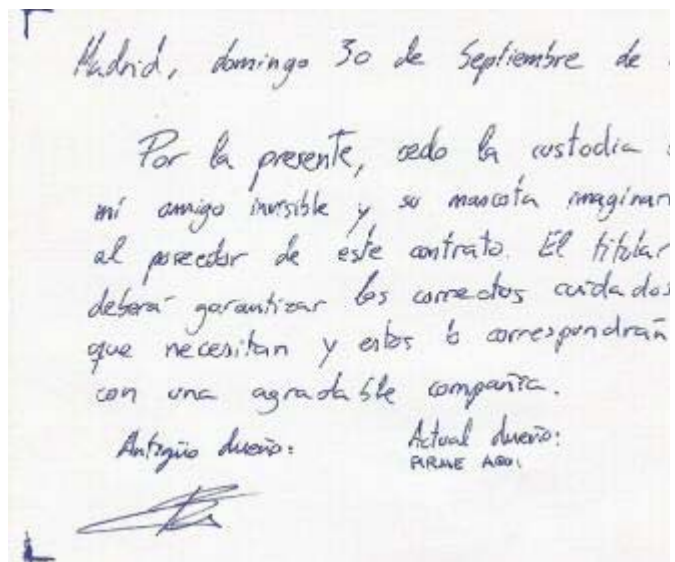 Madrid, domingo 30 de Septiembre de
Por la presente, cedo la custodia
mi amigo invisible y su mascota imaginar
al poseedor de este contrato. El titular
deberá garantizar los correctos cuidados
que necesitan y estos le corresponderán
con una agradable compañía.
Antigüo dueño: Actual dueño:
FIRME AQUÍ